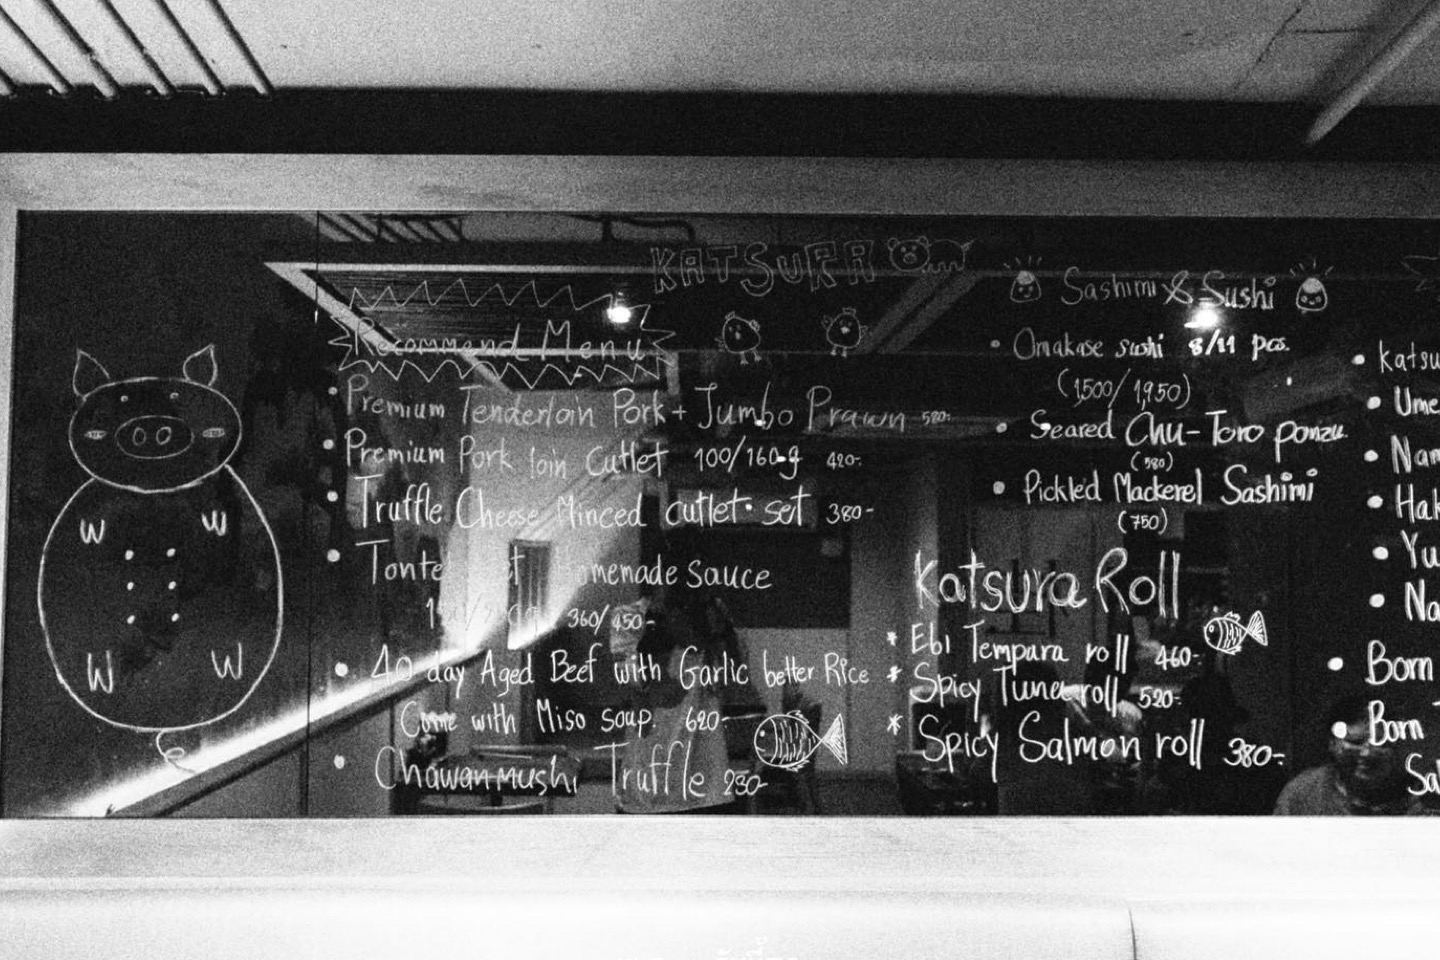 KATSURA
Recommend Menu
• Premium Tenderloin Pork + Jumbo Prawn 580.-
• Premium Pork loin Cutlet 100/160g 420.-
• Truffle Cheese Minced cutlet set 380-
• Homemade sauce
360/450-
• 40 day Aged Beef with Garlic better Rice
Come with Miso soup. 620-
• Chawanmushi Truffle 230-
Sashimi & Sushi
• Omakase sushi 8/11 pcs.
(1,500/1,950)
• Seared Chu-Toro ponzu
(580)
• Pickled Mackerel Sashimi
(750)
Katsura Roll
* Ebi Tempara roll 460-
* Spicy Tuna roll 520-
* Spicy Salmon roll 380-
• Katsu
• Ume
• Nam
• Hak
• Yu
• Na
• Born
• Born
Sal
W W
W W